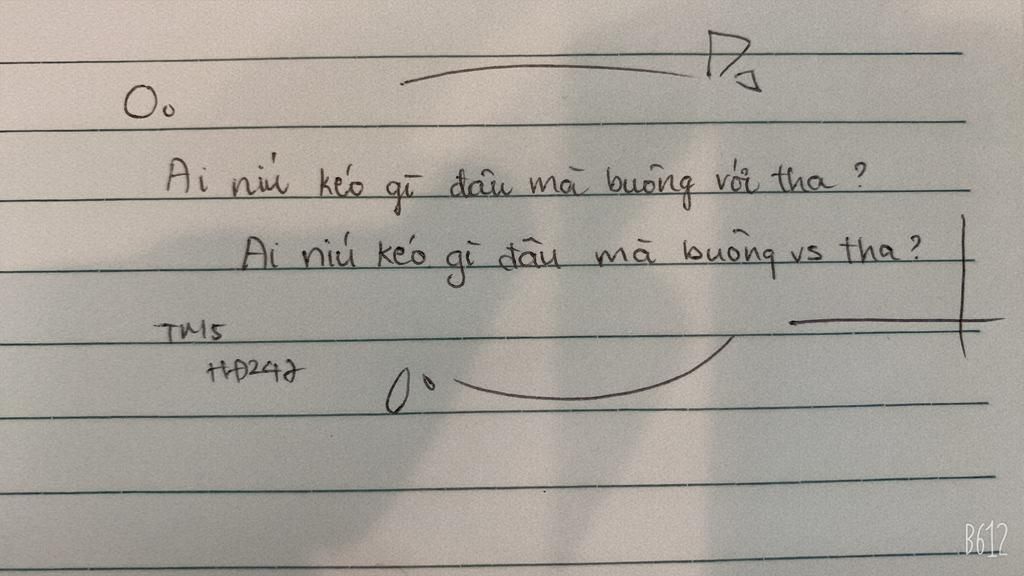 Ai níu kéo gì đâu mà buông với tha ?
Ai níu kéo gì đâu mà buông vs tha ?
B612